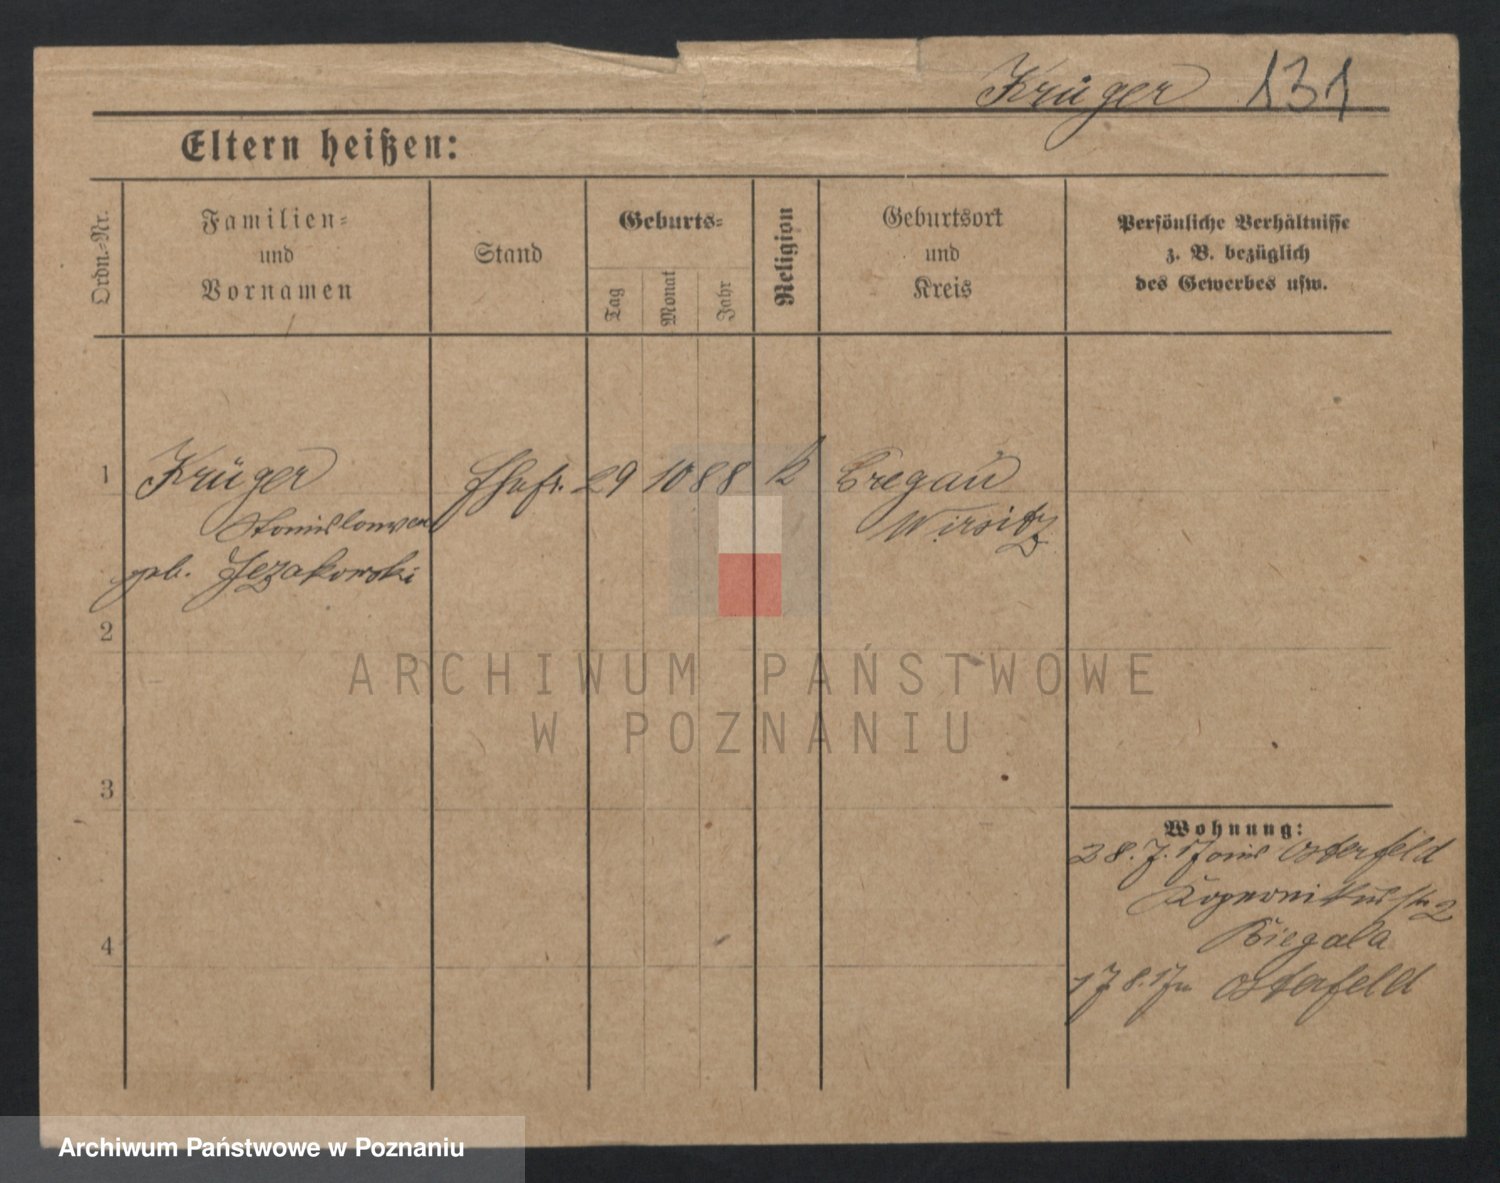 Krüger 131
Eltern heißen:
Ordn.-Nr.
Familien-
und
Vornamen
Stand
Geburts-
Tag
Monat
Jahr
Religion
Geburtsort
und
Kreis
Persönliche Verhältnisse
z. B. bezüglich
des Gewerbes usw.
1 Krüger 29 10 88 k Gregau
Wirsitz
geb. Jezakowski
2
3
4
Wohnung:
28. 7. 17 aus Osterfeld
Kopernikusstr 2
Biegala
17 8. 17 n Osterfeld
ARCHIWUM PAŃSTWOWE
W POZNANIU
Archiwum Państwowe w Poznaniu